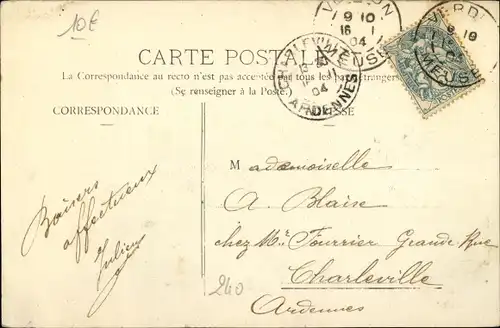 10€
VERDUN
9 10
16 1
04
MEUSE
VERD
MEUSE
CHARLEVILLE
04
ARDENNES
CARTE POSTALE
La Correspondance au recto n'est pas acceptée par tous les pays étrangers
(Se renseigner à la Poste.)
CORRESPONDANCE
ADRESSE
Mademoiselle
A. Blaise
chez Mr. Fourrier Grande Rue
Charleville
Ardennes
Baisers
affectueux
Julien
240